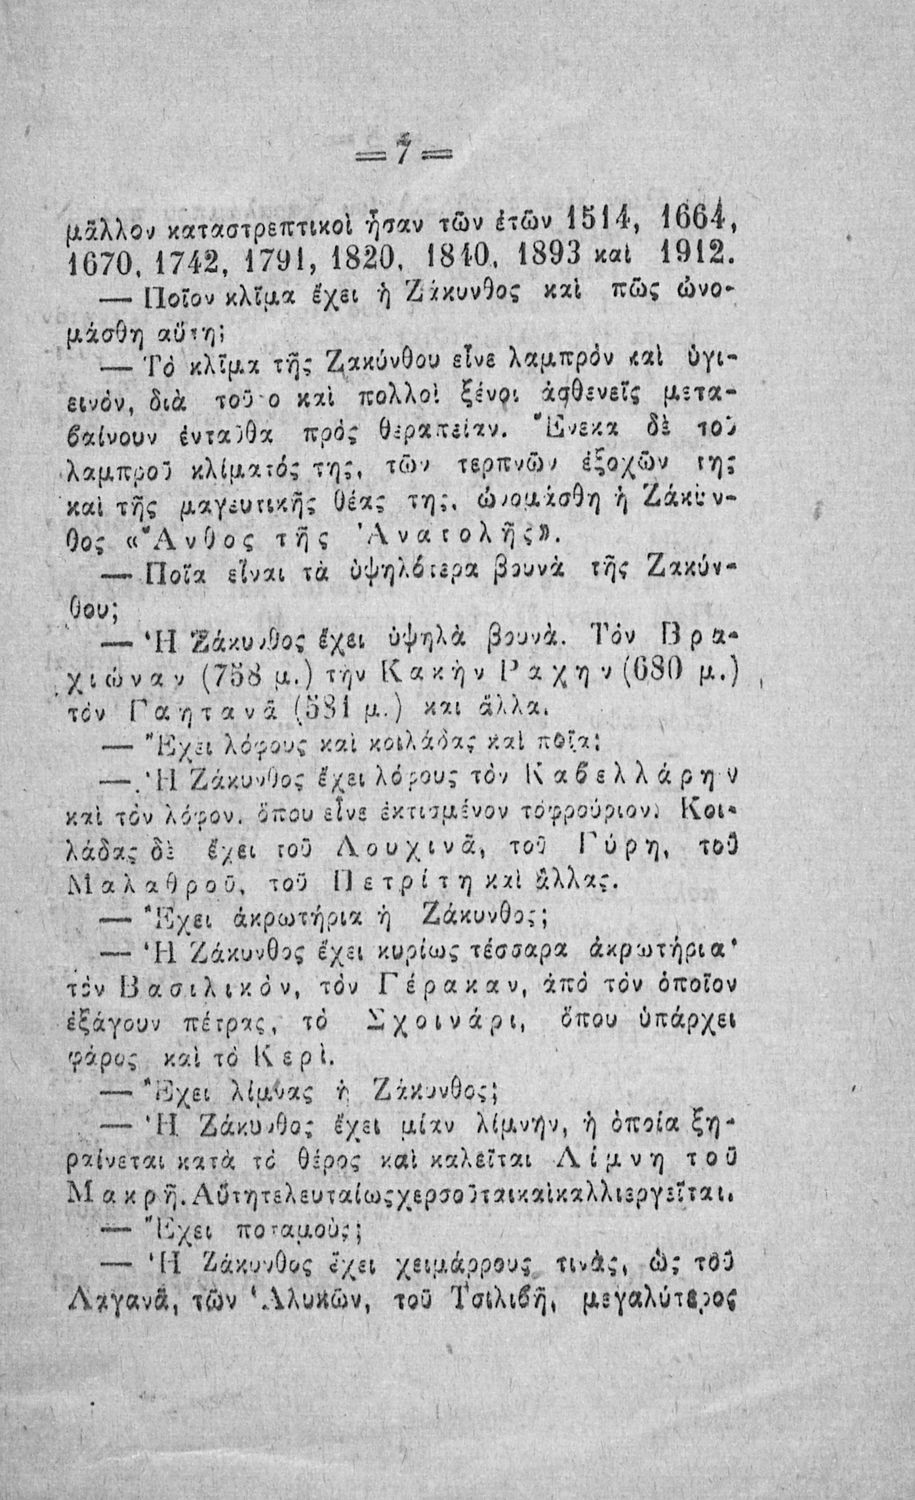 = 7 =
μᾶλλον καταστρεπτικοὶ ἦσαν τῶν ἐτῶν 1514, 1664,
1670, 1742, 1791, 1820, 1840, 1893 καὶ 1912.
— Ποῖον κλῖμα ἔχει ἡ Ζάκυνθος καὶ πῶς ὠνο-
μάσθη αὕτη;
— Τὸ κλῖμα τῆς Ζακύνθου εἶνε λαμπρὸν καὶ ὑγι-
εινόν, διὰ τοῦτο καὶ πολλοὶ ξένοι ἀσθενεῖς μετα-
βαίνουν ἐνταῦθα πρὸς θεραπείαν. Ἕνεκα δὲ τοῦ
λαμπροῦ κλίματός της, τῶν τερπνῶν ἐξοχῶν της
καὶ τῆς μαγευτικῆς θέας της, ὠνομάσθη ἡ Ζάκυν-
θος «Ἄνθος τῆς Ἀνατολῆς».
— Ποῖα εἶναι τὰ ὑψηλότερα βουνὰ τῆς Ζακύν-
θου;
— Ἡ Ζάκυνθος ἔχει ὑψηλὰ βουνά. Τὸν Βρα-
χιώναν (758 μ.) τὴν Κακὴν Ράχην (680 μ.)
τὸν Γαητανᾶ (581 μ.) καὶ ἄλλα.
— Ἔχει λόφους καὶ κοιλάδας καὶ ποῖα;
— Ἡ Ζάκυνθος ἔχει λόφους τὸν Καβελλάρην
καὶ τὸν λόφον, ὅπου εἶνε ἐκτισμένον τὸ φρούριον. Κοι-
λάδας δὲ ἔχει τοῦ Λουχινᾶ, τοῦ Γύρη, τοῦ
Μαλαθροῦ, τοῦ Πετρίτη καὶ ἄλλας.
— Ἔχει ἀκρωτήρια ἡ Ζάκυνθος;
— Ἡ Ζάκυνθος ἔχει κυρίως τέσσαρα ἀκρωτήρια·
τὸν Βασιλικὸν, τὸν Γέρακαν, ἀπὸ τὸν ὁποῖον
ἐξάγουν πέτρας, τὸ Σχοινάρι, ὅπου ὑπάρχει
φάρος καὶ τὸ Κερὶ.
— Ἔχει λίμνας ἡ Ζάκυνθος;
— Ἡ Ζάκυνθος ἔχει μίαν λίμνην, ἡ ὁποία ξη-
ραίνεται κατὰ τὸ θέρος καὶ καλεῖται Λίμνη τοῦ
Μακρῆ. Αὕτη τελευταίως χερσοῦται καὶ καλλιεργεῖται.
— Ἔχει ποταμοὺς;
— Ἡ Ζάκυνθος ἔχει χειμάρρους τινὰς, ὡς τοῦ
Λαγανᾶ, τῶν Ἁλυκῶν, τοῦ Τσιλιβῆ, μεγαλύτερος